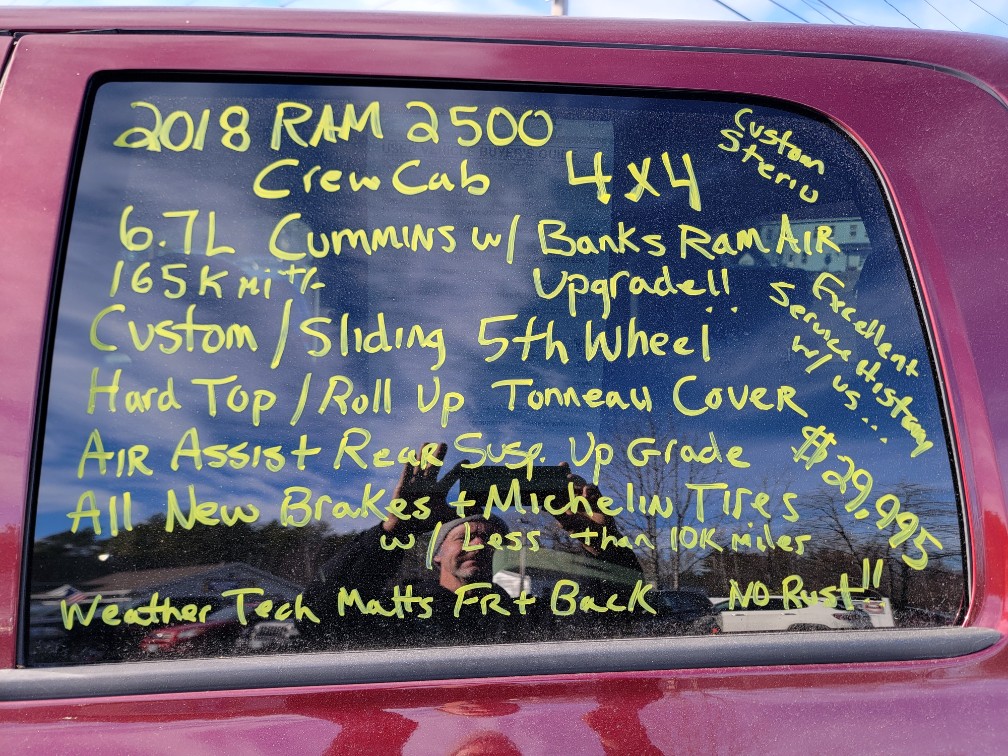 2018 RAM 2500
Crew Cab 4x4
Custom
Steriu
6.7L Cummins w/ Banks Ram Air
165K mi +/- Upgrade!!
Custom / Sliding 5th Wheel
Excellent
Service History
w/ us...
Hard Top / Roll Up Tonneau Cover
Air Assist Rear Susp. Up Grade
$29,995
All New Brakes + Michelin Tires
w/ Less than 10K miles
Weather Tech Matts FR + Back No Rust!!